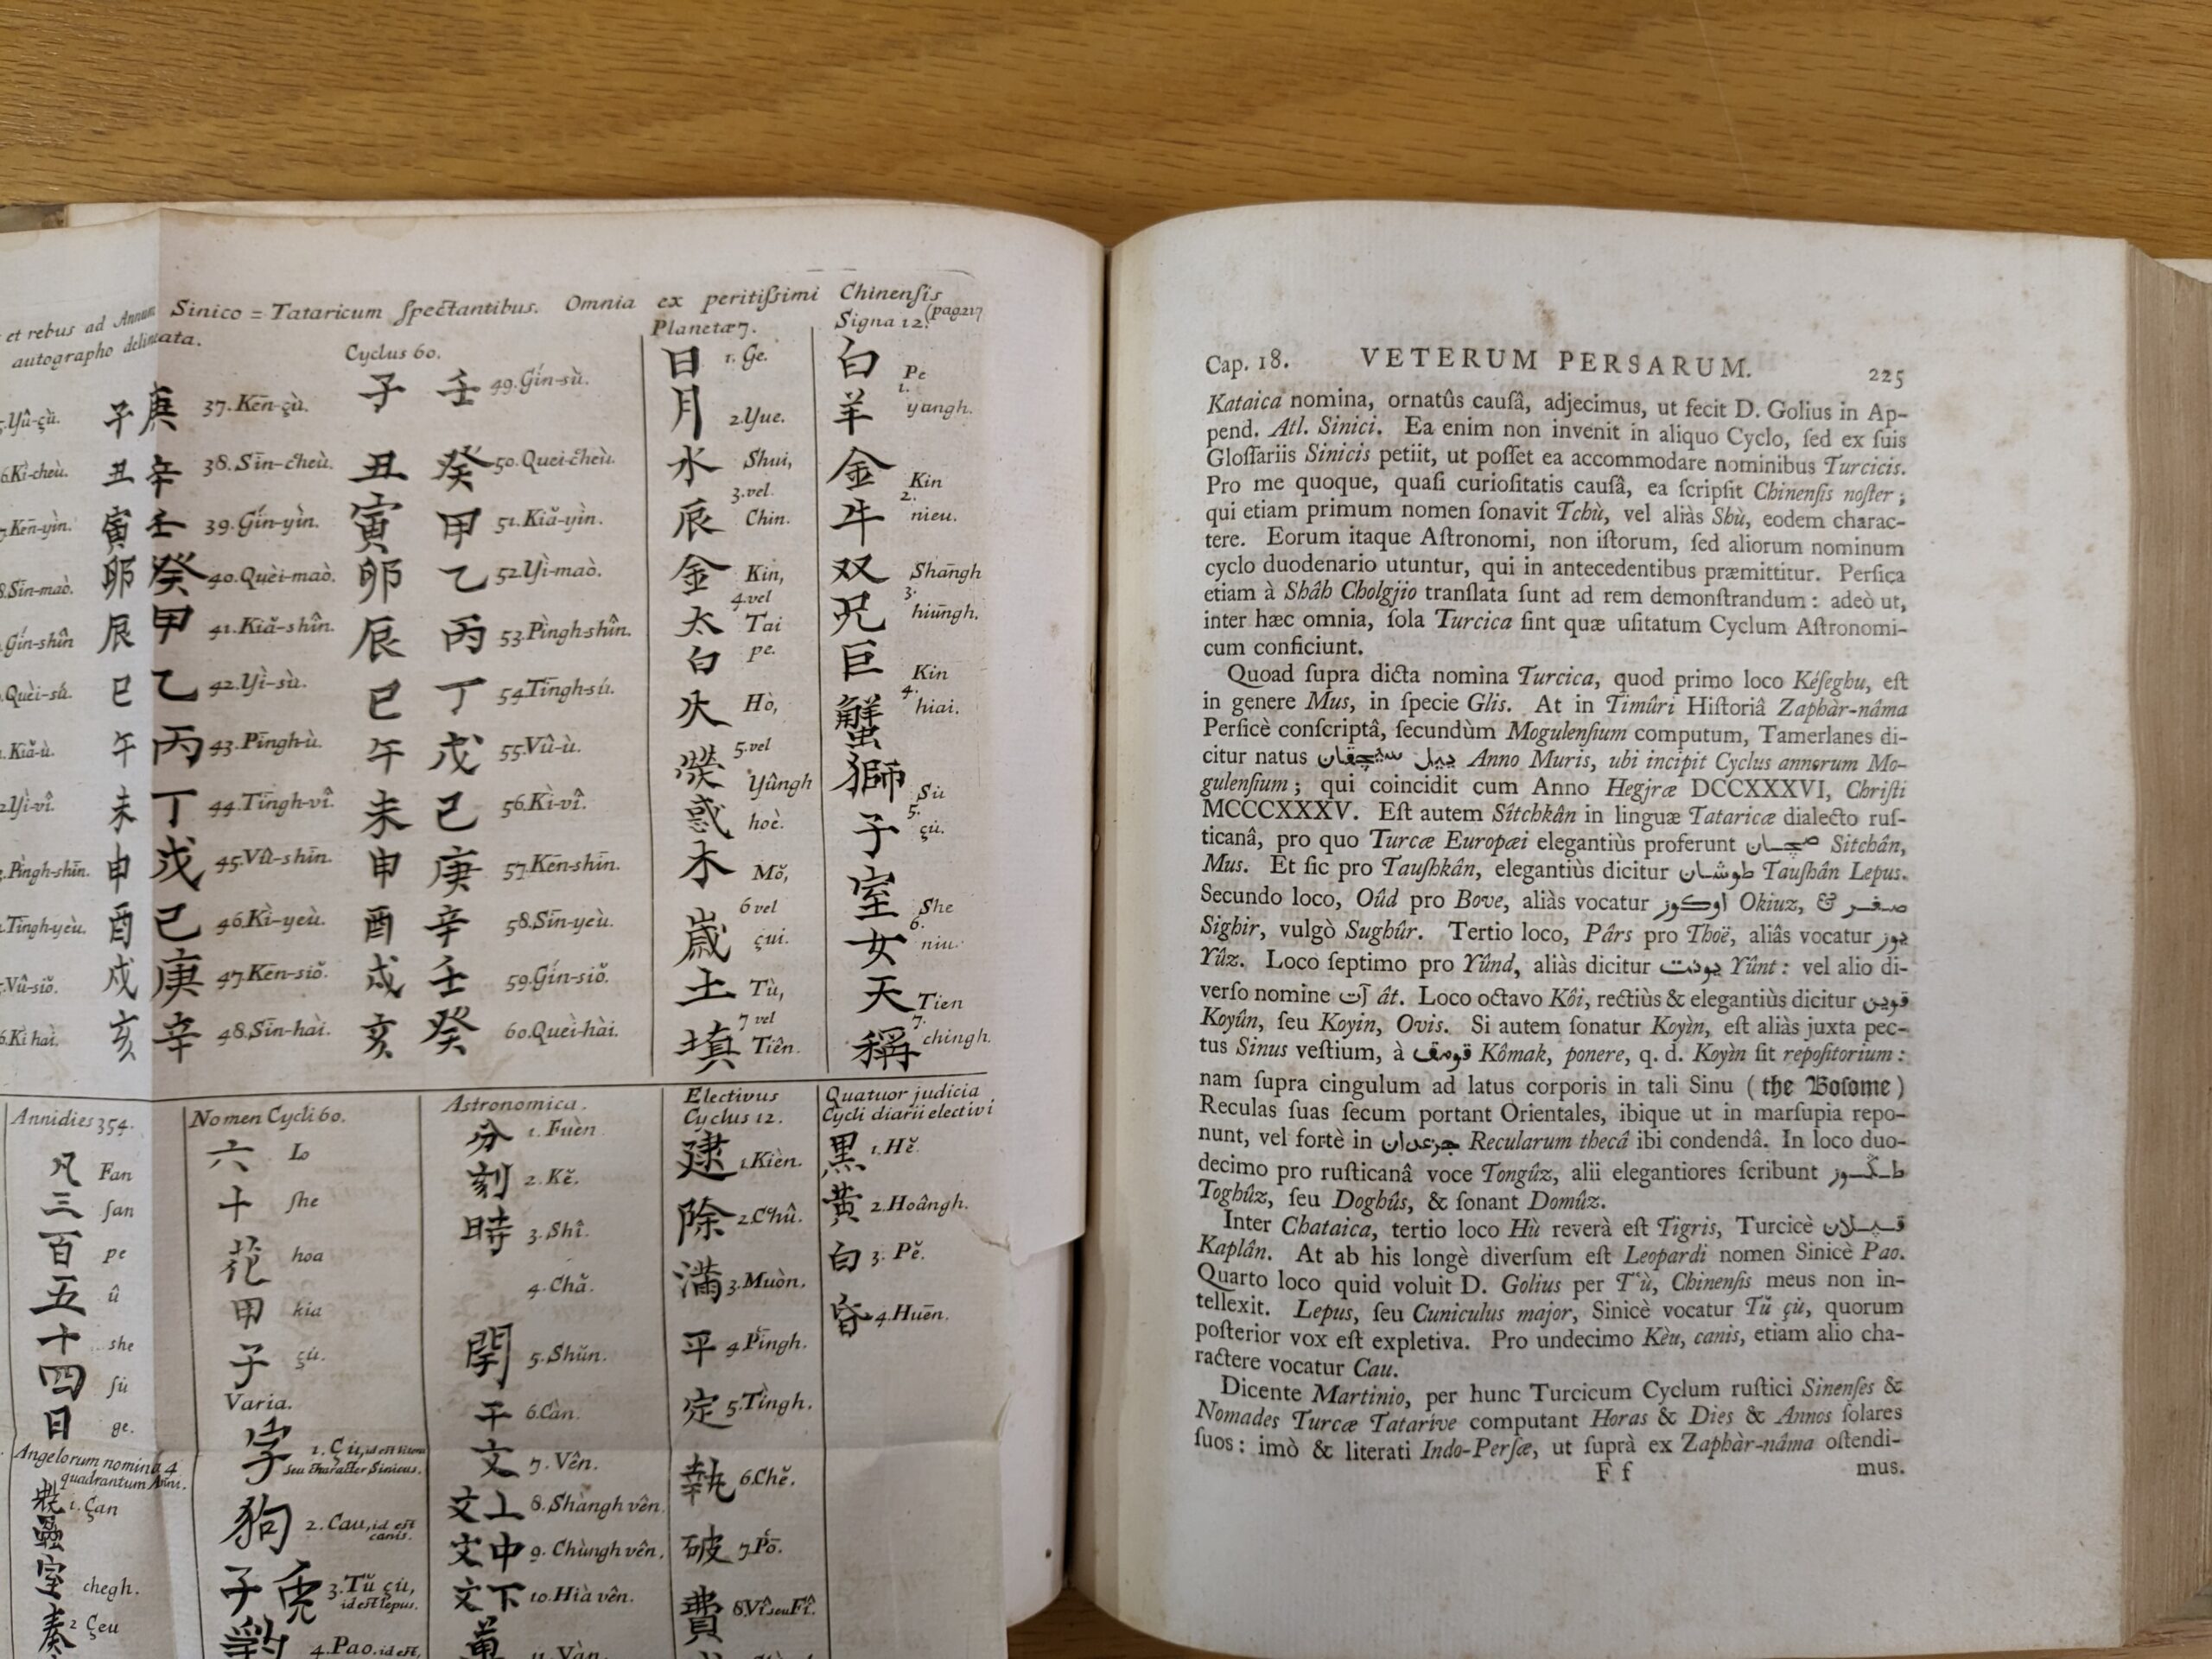 et rebus ad Annum Sinico = Tataricum ſpectantibus. Omnia ex peritiſsimi Chinenſis
autographo delineata.
(pag 217
Cyclus 60.
Kì-cheù.
Kēn-yìn.
Sīn-maò.
Quèi-sú.
Kiă-ù.
Yì-vî.
Pìngh-shīn.
Tīngh-yeù.
Vû-siŏ.
Kì hài.
子庚 37. Kēn-çù.
丑辛 38. Sīn-cheù.
寅壬 39. Gín-yìn.
卯癸 40. Quèi-maò.
辰甲 41. Kiă-shîn.
巳乙 42. Yì-sù.
午丙 43. Pīngh-ù.
未丁 44. Tīngh-vî.
申戊 45. Vû-shīn.
酉己 46. Kì-yeù.
戌庚 47. Kēn-siŏ.
亥辛 48. Sīn-hài.
子壬 49. Gín-sù.
丑癸 50. Quei-cheù.
寅甲 51. Kiă-yìn.
卯乙 52. Yì-maò.
辰丙 53. Pìngh-shîn.
巳丁 54. Tīngh-sú.
午戊 55. Vû-ù.
未己 56. Kì-vî.
申庚 57. Kēn-shīn.
酉辛 58. Sīn-yeù.
戌壬 59. Gín-siŏ.
亥癸 60. Quèi-hài.
Planetæ 7.
日 1. Ge.
月 2. Yue.
水 Shui,
3. vel
辰 Chin.
金 Kin,
4. vel
太 Tai
白 pe.
火 Hò,
5. vel
熒 Yûngh
惑 hoè.
木 Mŏ,
6 vel
歲 çui.
土 Tù,
7 vel
填 Tiên.
Signa 12.
白 Pe
1.
羊 yangh.
金 Kin
2.
牛 nieu.
双 Shāngh
3.
兄 hiūngh.
巨 Kin
4.
蟹 hiai.
獅 Sù
5.
子 çù.
室 She
6.
女 niu.
天 Tien
7.
稱 chingh.
Anni dies 354.
凡 Fan
三 ſan
百 pe
五 û
十 she
四 ſù
日 ge.
Angelorum nomina 4
quadrantum Anni.
1. Çan
室 chegh.
奏 2 Çeu
Nomen Cycli 60.
六 Lo
十 ſhe
花 hoa
甲 kia
子 çù.
Varia.
字 1. Çù, id est litera
seu character Sinicus.
狗 2. Cau, id est
canis.
子兎 3. Tŭ çú,
id est lepus.
豹 4. Pao. id est,
Astronomica.
分 1. Fuèn
刻 2. Kĕ.
時 3. Shî.
4. Chă.
閏 5. Shŭn.
干 6. Càn.
文 7. Vên.
文上 8. Shàngh vên.
文中 9. Chùngh vên.
文下 10. Hià vên.
萬 11. Vàn.
Electivus
Cyclus 12.
建 1. Kièn.
除 2. Chû.
满 3. Muòn.
平 4 Pîngh.
定 5. Tìngh.
執 6. Chĕ.
破 7. Pō.
費 8 Vî seu Fî.
Quatuor judicia
Cycli diarii electivi
黒 1. Hĕ.
黄 2. Hoângh.
白 3. Pĕ.
昏 4. Huēn.
Cap. 18. VETERUM PERSARUM. 225
Kataica nomina, ornatûs cauſâ, adjecimus, ut fecit D. Golius in Ap-
pend. Atl. Sinici. Ea enim non invenit in aliquo Cyclo, ſed ex ſuis
Gloſſariis Sinicis petiit, ut poſſet ea accommodare nominibus Turcicis.
Pro me quoque, quaſi curioſitatis cauſâ, ea ſcripſit Chinenſis noſter;
qui etiam primum nomen ſonavit Tchù, vel aliàs Shù, eodem charac-
tere. Eorum itaque Aſtronomi, non iſtorum, ſed aliorum nominum
cyclo duodenario utuntur, qui in antecedentibus præmittitur. Perſica
etiam à Shâh Cholgjio tranſlata ſunt ad rem demonſtrandum: adeò ut,
inter hæc omnia, ſola Turcica ſint quæ uſitatum Cyclum Aſtronomi-
cum conficiunt.
Quoad ſupra dicta nomina Turcica, quod primo loco Késeghu, eſt
in genere Mus, in ſpecie Glis. At in Timûri Hiſtoriâ Zaphàr-nâma
Perſicè conſcriptâ, ſecundùm Mogulenſium computum, Tamerlanes di-
citur natus ييل سيچقان Anno Muris, ubi incipit Cyclus annorum Mo-
gulenſium; qui coincidit cum Anno Hegjræ DCCXXXVI, Chriſti
MCCCXXXV. Eſt autem Sítchkân in linguæ Tataricæ dialecto ruſ-
ticanâ, pro quo Turcæ Europæi elegantiùs proferunt صچان Sitchân,
Mus. Et ſic pro Tauſhkân, elegantiùs dicitur طوشان Tauſhân Lepus.
Secundo loco, Oûd pro Bove, aliàs vocatur اوكوز Okiuz, & صغر
Sighir, vulgò Sughûr. Tertio loco, Pârs pro Thoë, aliâs vocatur يوز
Yûz. Loco ſeptimo pro Yûnd, aliàs dicitur يونت Yûnt: vel alio di-
verſo nomine آت ât. Loco octavo Kôi, rectiùs & elegantiùs dicitur قوين
Koyûn, ſeu Koyin, Ovis. Si autem ſonatur Koyìn, eſt aliàs juxta pec-
tus Sinus veſtium, à قومق Kômak, ponere, q. d. Koyìn ſit repoſitorium:
nam ſupra cingulum ad latus corporis in tali Sinu (the Boſome)
Reculas ſuas ſecum portant Orientales, ibique ut in marſupia repo-
nunt, vel fortè in جزعدان Recularum thecâ ibi condendâ. In loco duo-
decimo pro ruſticanâ voce Tongûz, alii elegantiores ſcribunt طڭوز
Toghûz, ſeu Doghûs, & ſonant Domûz.
Inter Chataica, tertio loco Hù reverà eſt Tigris, Turcicè قپلان
Kaplân. At ab his longè diverſum eſt Leopardi nomen Sinicè Pao.
Quarto loco quid voluit D. Golius per T'ù, Chinenſis meus non in-
tellexit. Lepus, ſeu Cuniculus major, Sinicè vocatur Tŭ çù, quorum
poſterior vox eſt expletiva. Pro undecimo Kèu, canis, etiam alio cha-
ractere vocatur Cau.
Dicente Martinio, per hunc Turcicum Cyclum ruſtici Sinenſes &
Nomades Turcæ Tatarive computant Horas & Dies & Annos ſolares
ſuos: imò & literati Indo-Perſæ, ut ſuprà ex Zaphàr-nâma oſtendi-
F f mus.